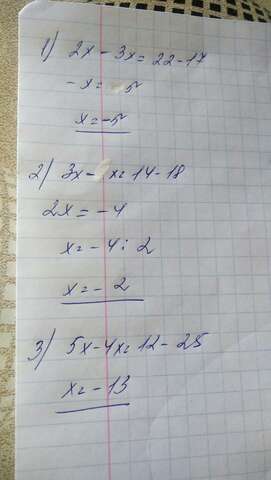 1) 2x - 3x = 22 - 17
- x = 5
x = -5
2) 3x - x = 14 - 18
2x = -4
x = -4 : 2
x = -2
3) 5x - 4x = 12 - 25
x = -13